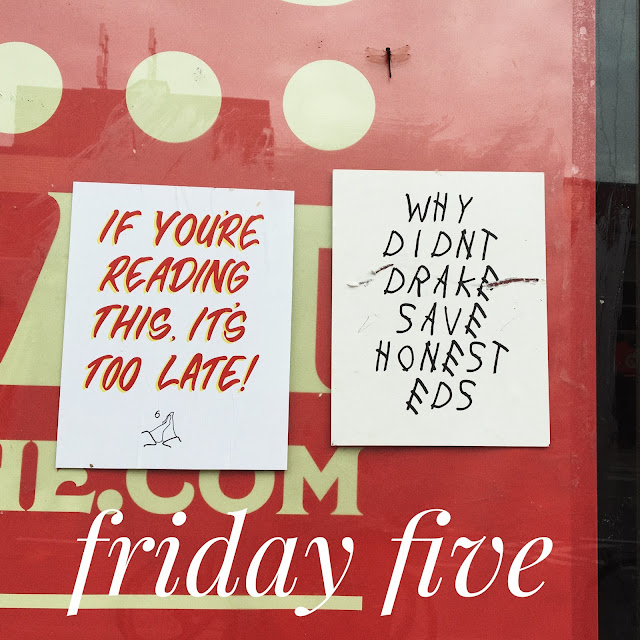 IF YOU'RE
READING
THIS, IT'S
TOO LATE!
6
WHY
DIDNT
DRAKE
SAVE
HONEST
EDS
.COM
friday five